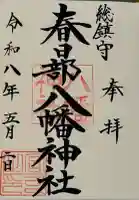 奉拝
総鎮守
春日部八幡神社
令和八年五月二日